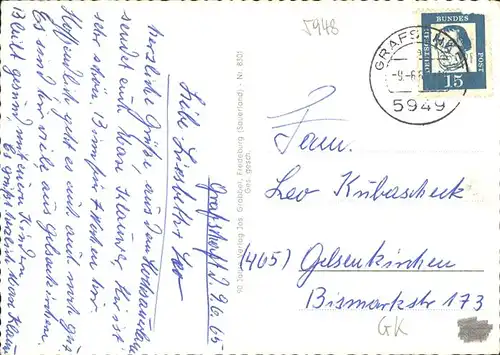 5948
GRAFSCHAFT
-9.-6.65
5949
DEUTSCHE BUNDESPOST
15
Grafschaft d. 9.6.65
Liebe Liesbeth u. Leo
Herzliche Grüße, aus dem Hochsauerland
sendet euch
hier ist
sehr schön. Bin für 4 Wochen hier
Hoffentlich geht es euch auch noch gut
Es sind hier viele aus Gelsenkirchen.
Bleibt gesund mit euren Kindern
Es grüßt
90 Jahre Verlag Jos. Grobbel, Fredeburg (Sauerland) · Nr. 8301
Ges. gesch.
Fam.
Leo Kubascheck
(465) Gelsenkirchen
Bismarkstr 173
GK